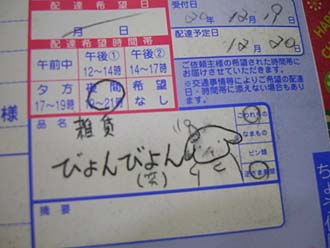 配達希望日
月 日
受付日
20年 12月 19日
配達予定日
12月 20日
配達希望時間帯
午前中
午後①
12〜14時
午後②
14〜17時
夕方
夜間
19〜21時
希望
なし
ご依頼主様の希望された時間帯に
お届けさせていただきます。
※交通事情等によりご希望の配達
日・時間帯に添えない場合もあり
ます。
様
品名
雑貨
びょんびょん
(笑)
こわれもの
なまもの
ビン類
逆さま厳禁
摘要